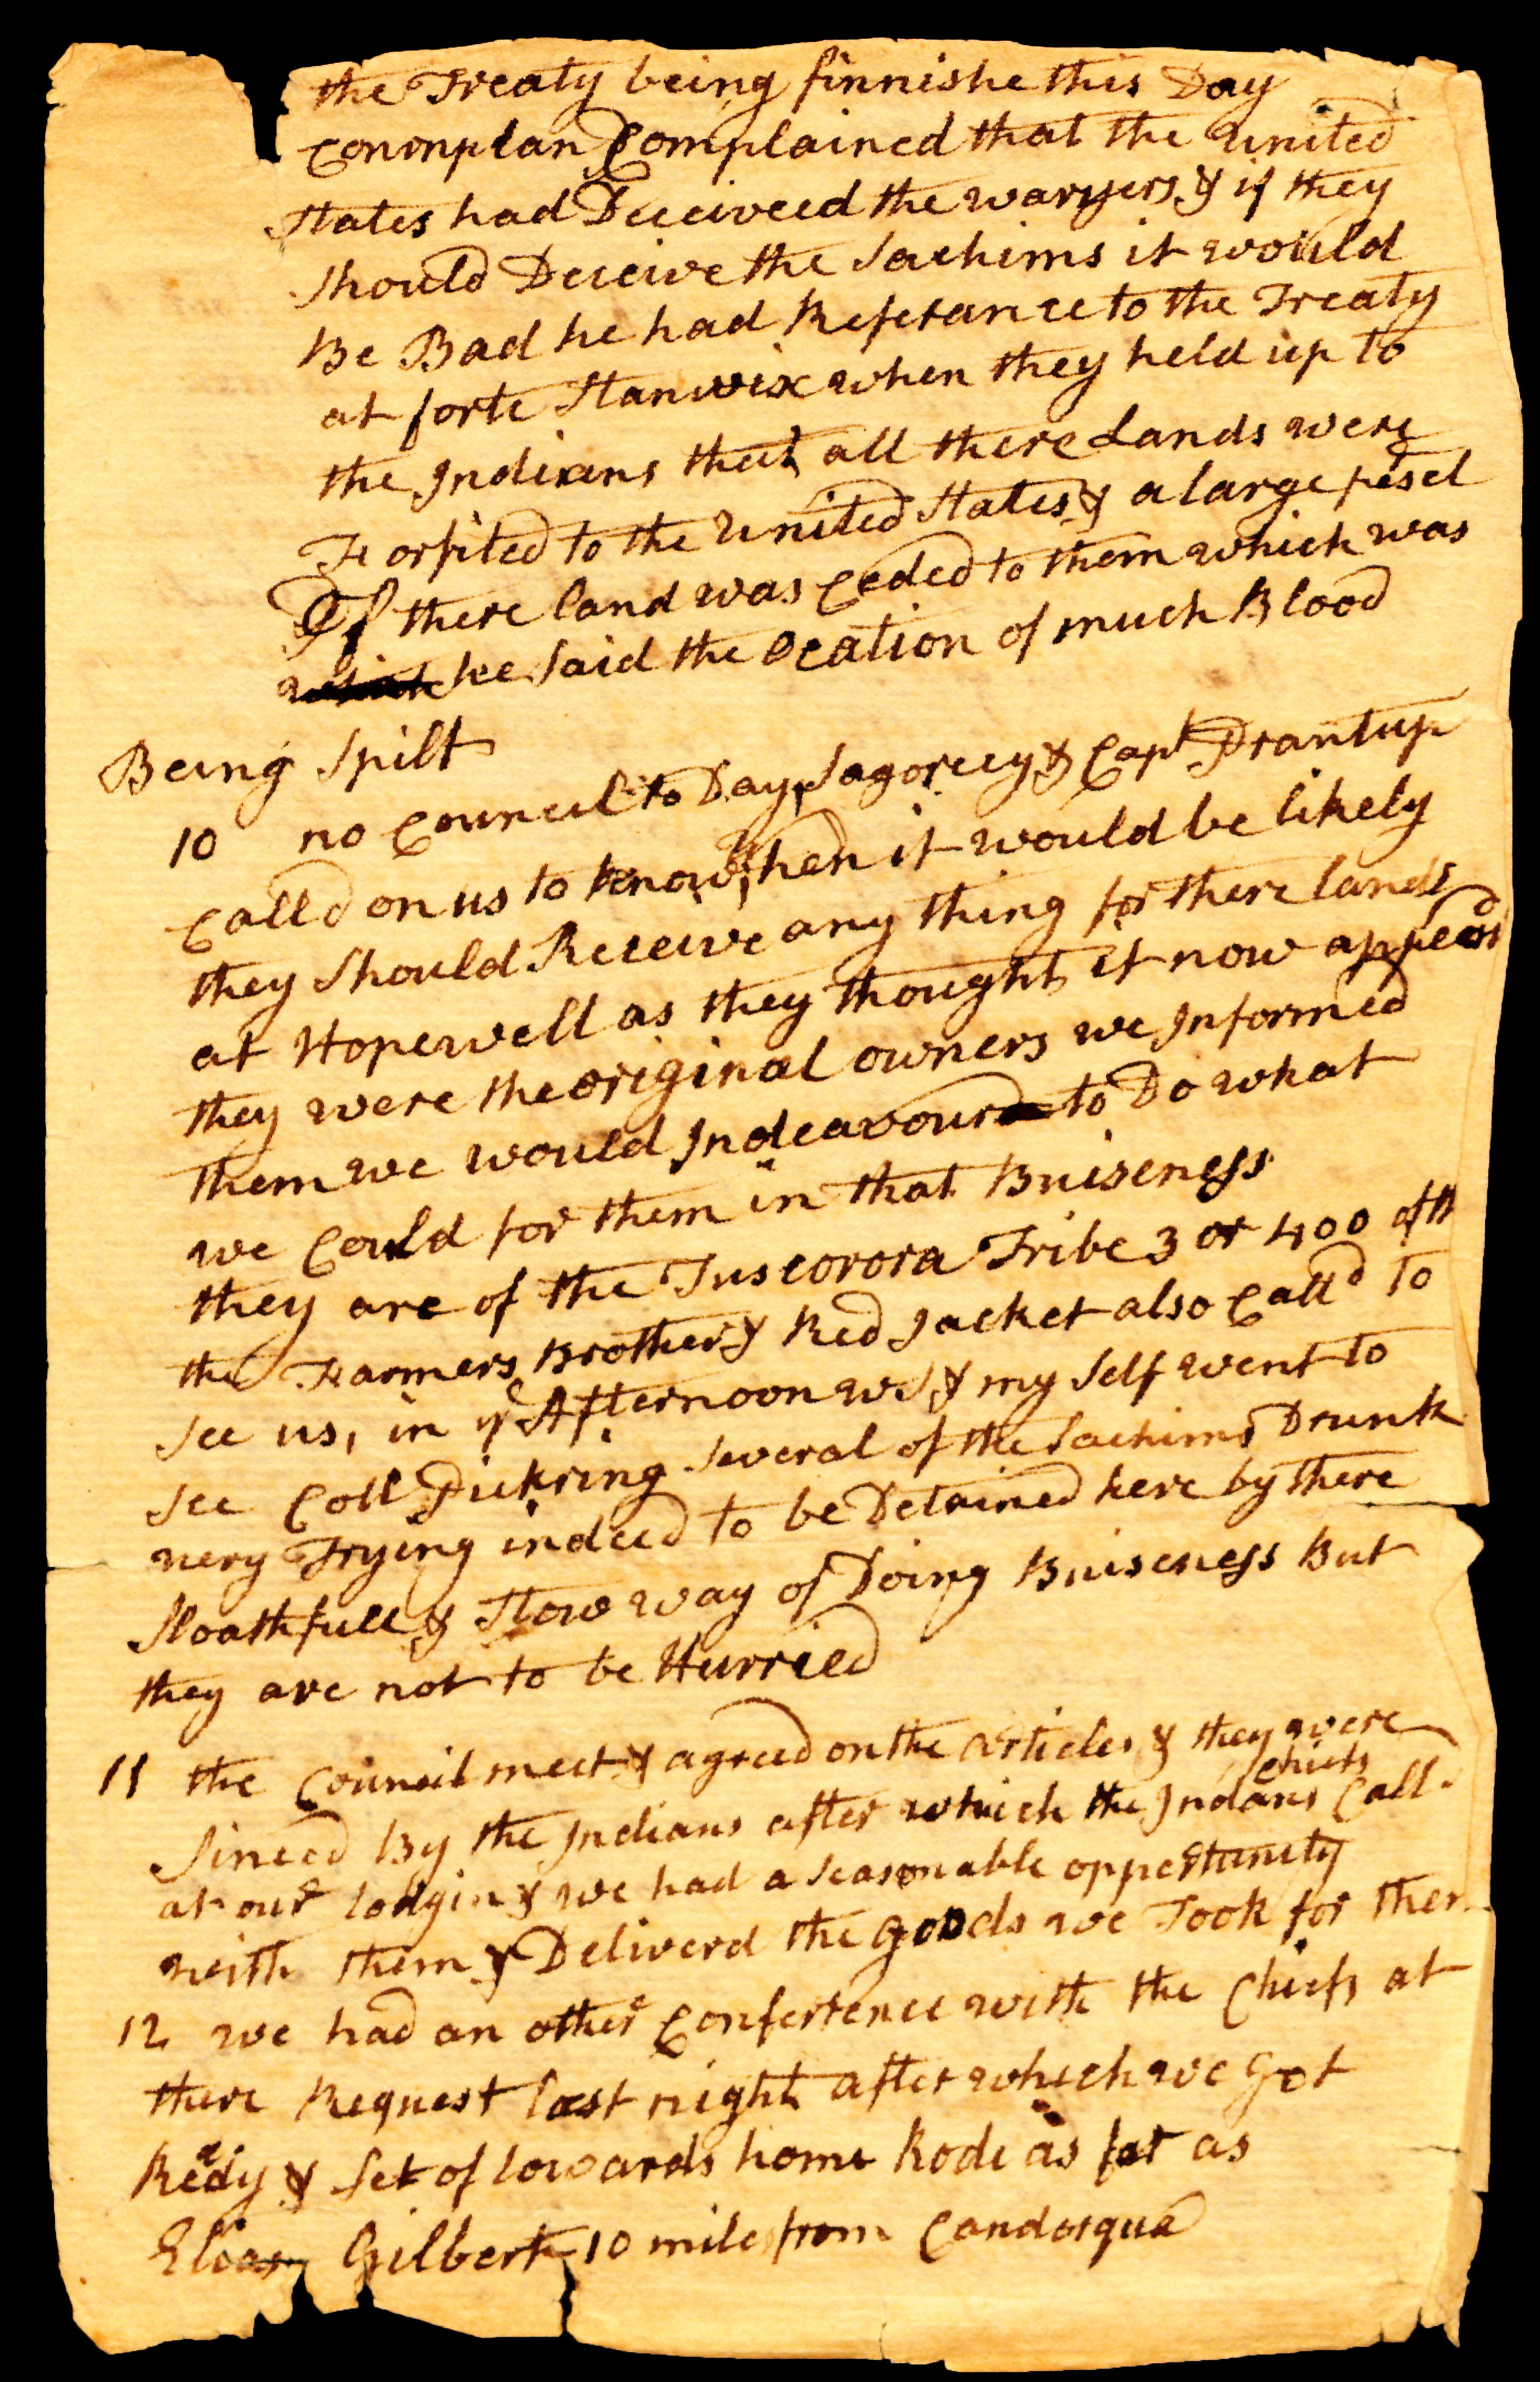 the Treaty being finnishe this Day
Cononplan Complained that the united
States had Deceiveed the waryers & if they
should Deceive the Sachims it would
Be Bad he had Referance to the Treaty
at forte Stanwix when they held up to
the Indians that all there Lands were
Forfited to the United States & a large pesel
Of there land was Ceded to them which was
he Said the ocation of much Blood
Being Spilt
10 no Council to Day, Sagoreey & Capt Prantup
Calld on us to know when it would be likely
they Should Receive any thing for there lands
at Hopewell as they thought it now appeard
they were the original owners we Informed
them we would Indeavour to Do what
we Could for them in that Buiseness
they are of the Tuscorora Tribe 3 or 400 of th
the Farmers Brother & Red Jacket also Calld to
See us, in ye Afternoon W S & my Self went to
See Coll Pickring Several of the Sachims Drunk
very Trying indeed to be Detained here by there
Sloathfull & Slow way of Doing Buiseness But
they are not to be Hurried
11 the Council meet & agreed on the articles & they were
Sineed By the Indians after which the Indans Chiefs Call
at our lodgin & we had a Seasonable oppertunity
with them & Deliverd the goods we Took for them
12 we had an other Conferrence with the Chiefs at
there Request last night after which we Got
Ready & Set of towards home Rode as far as
Elias Gilbert 10 miles from Candorqua